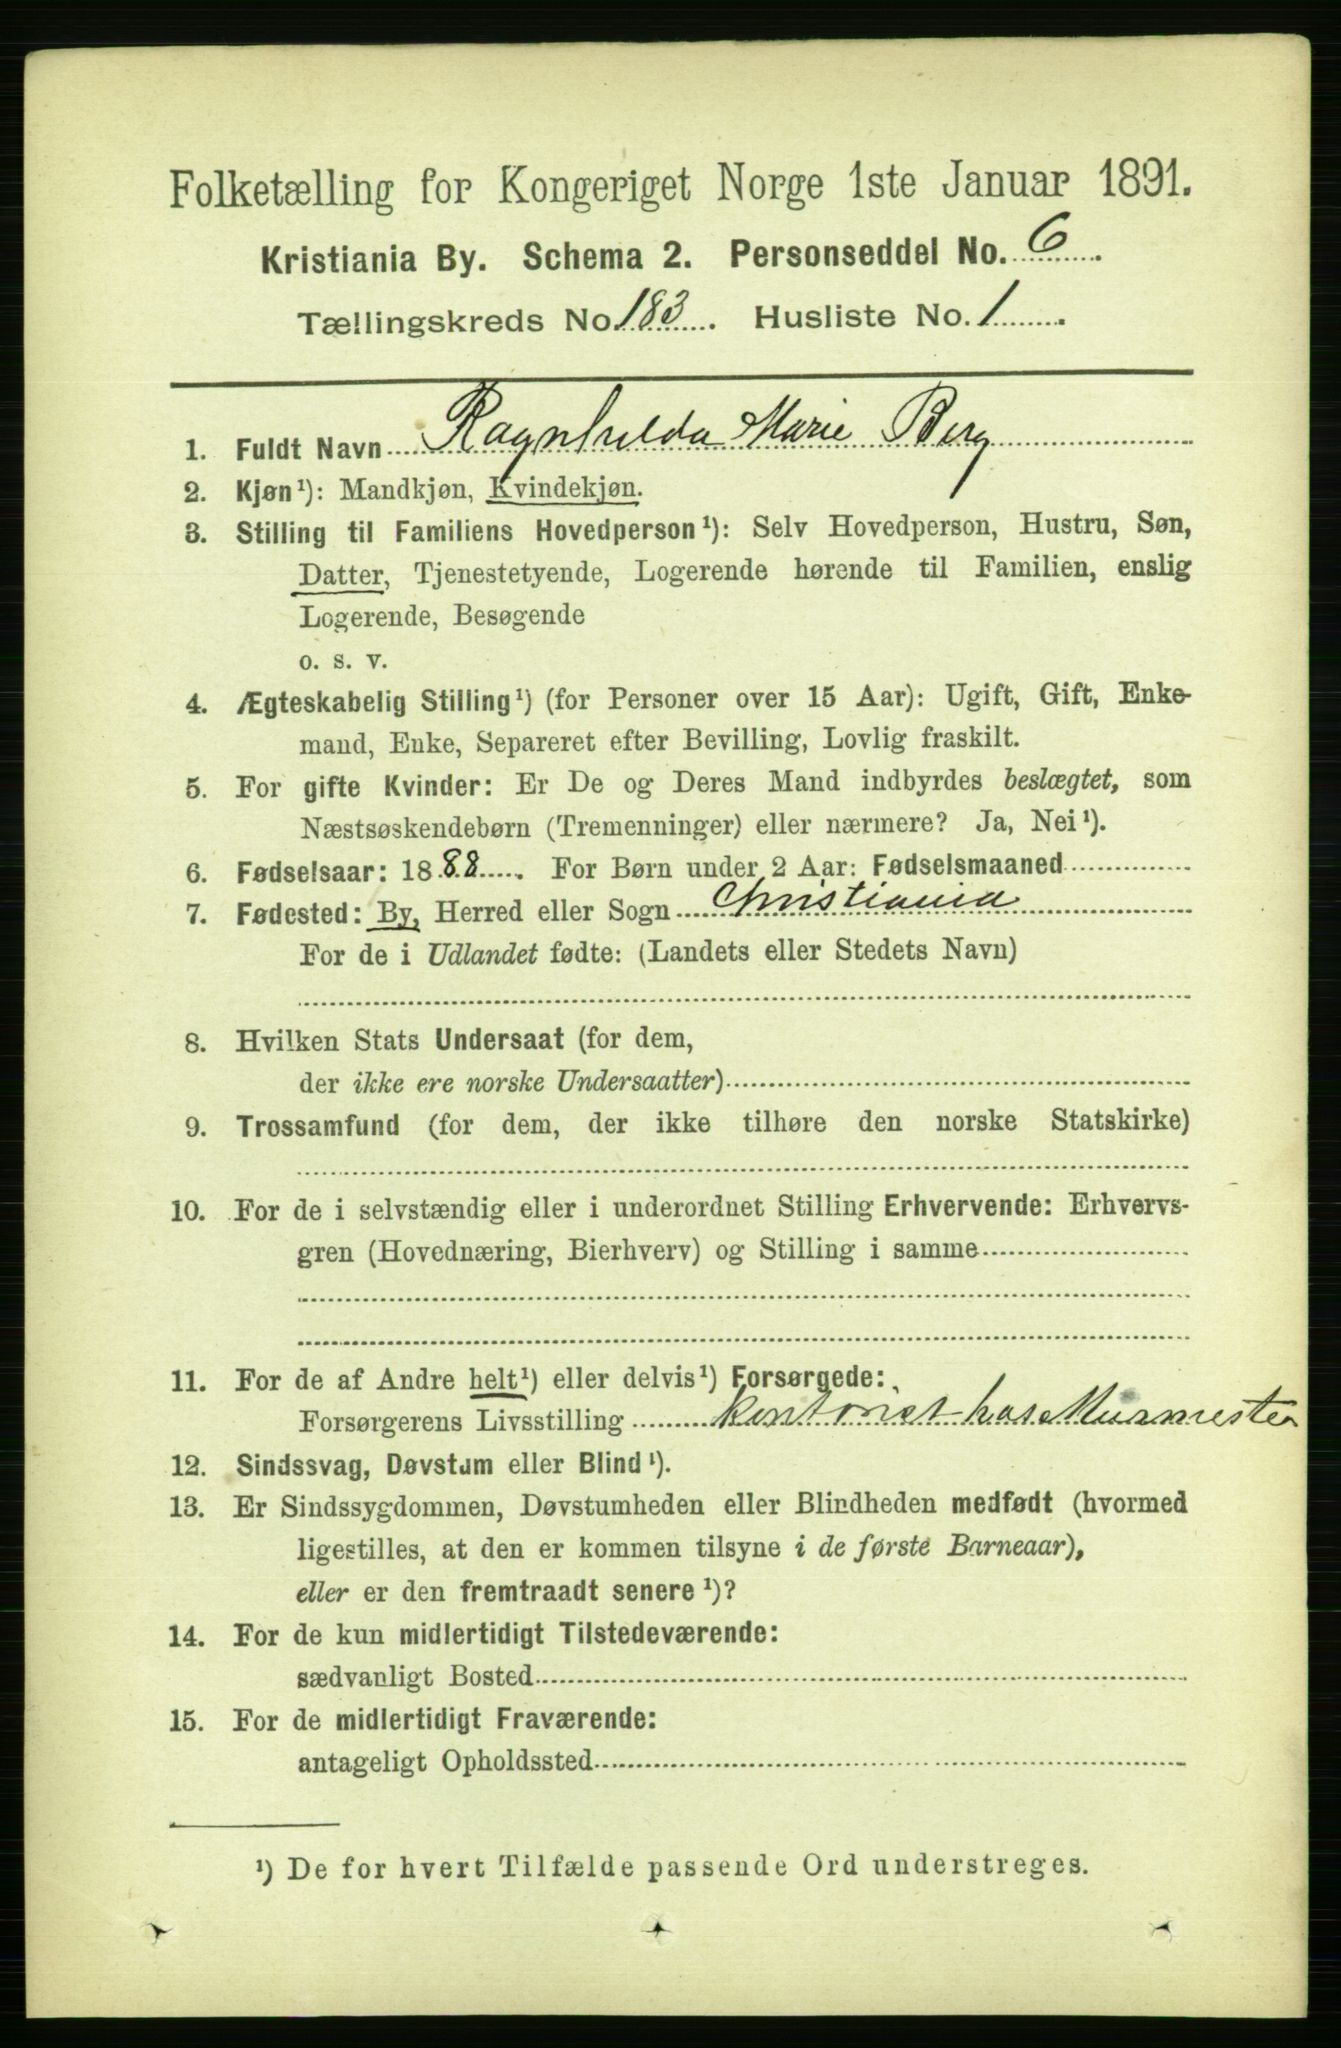 Folketælling for Kongeriget Norge 1ste Januar 1891.
Kristiania By. Schema 2. Personseddel No. 6.
Tællingskreds No. 183. Husliste No. 1.
1. Fuldt Navn Ragnhilda Marie Berg
2. Kjøn¹): Mandkjøn, Kvindekjøn.
3. Stilling til Familiens Hovedperson¹): Selv Hovedperson, Hustru, Søn,
Datter, Tjenestetyende, Logerende hørende til Familien, enslig
Logerende, Besøgende
o. s. v.
4. Ægteskabelig Stilling¹) (for Personer over 15 Aar): Ugift, Gift, Enke-
mand, Enke, Separeret efter Bevilling, Lovlig fraskilt.
5. For gifte Kvinder: Er De og Deres Mand indbyrdes beslægtet, som
Næstsøskendebørn (Tremenninger) eller nærmere? Ja, Nei¹).
6. Fødselsaar: 1888. For Børn under 2 Aar: Fødselsmaaned
7. Fødested: By, Herred eller Sogn Christiania
For de i Udlandet fødte: (Landets eller Stedets Navn)
8. Hvilken Stats Undersaat (for dem,
der ikke ere norske Undersaatter)
9. Trossamfund (for dem, der ikke tilhøre den norske Statskirke)
10. For de i selvstændig eller i underordnet Stilling Erhvervende: Erhvervs-
gren (Hovednæring, Bierhverv) og Stilling i samme
11. For de af Andre helt¹) eller delvis¹) Forsørgede:
Forsørgerens Livsstilling Kontorist hos Murmester
12. Sindssvag, Døvstum eller Blind¹).
13. Er Sindssygdommen, Døvstumheden eller Blindheden medfødt (hvormed
ligestilles, at den er kommen tilsyne i de første Barneaar),
eller er den fremtraadt senere¹)?
14. For de kun midlertidigt Tilstedeværende:
sædvanligt Bosted
15. For de midlertidigt Fraværende:
antageligt Opholdssted
¹) De for hvert Tilfælde passende Ord understreges.